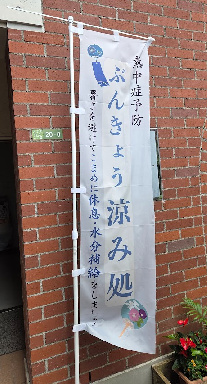 熱中症予防
ぶんきょう涼み処
暑さを避けてこまめに休息・水分補給をしましょう
20-9